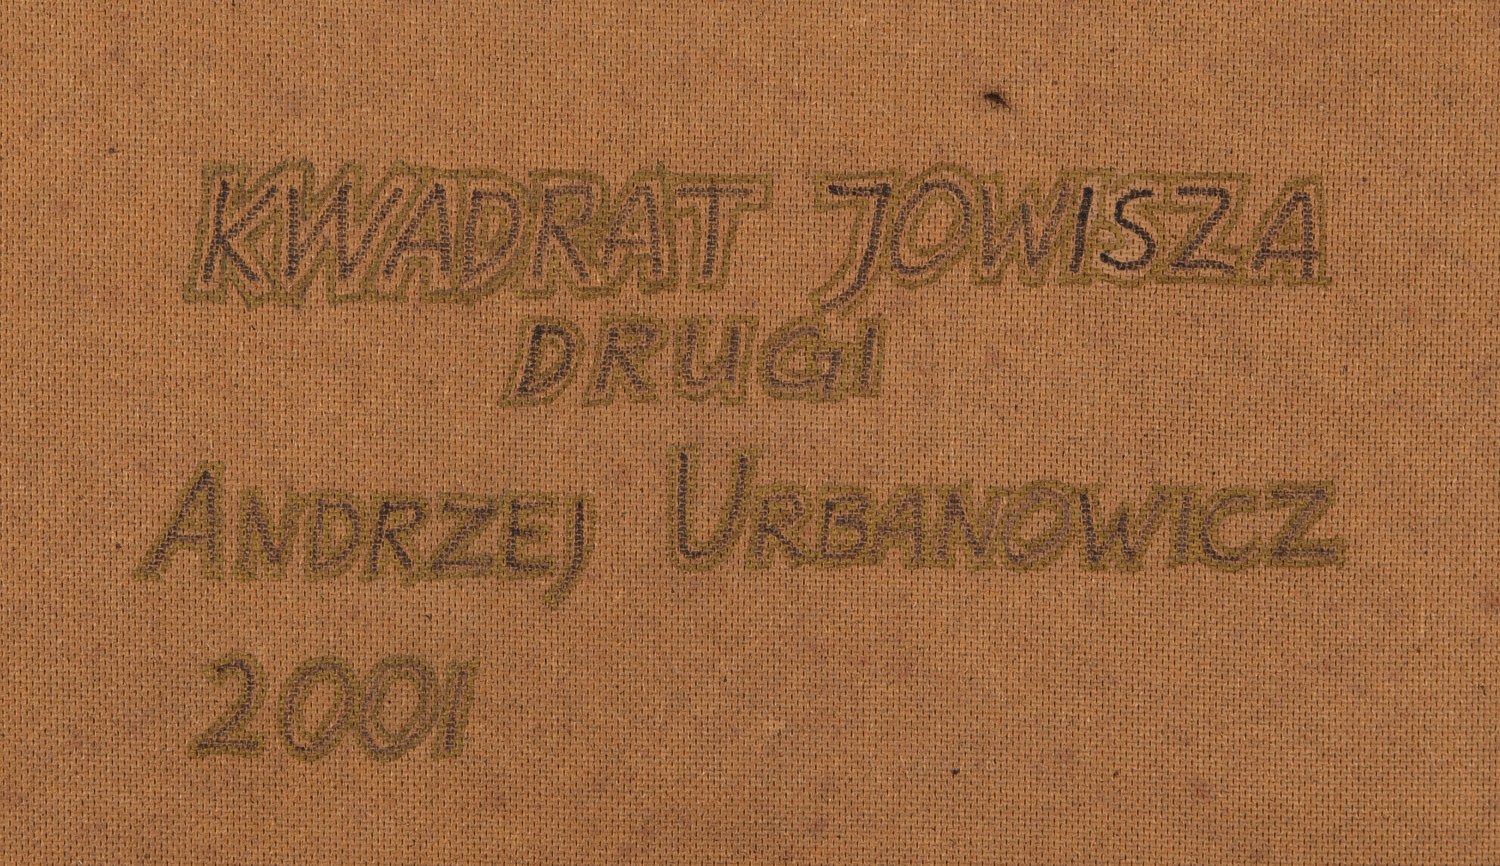 KWADRAT JOWISZA
DRUGI
ANDRZEJ URBANOWICZ
2001